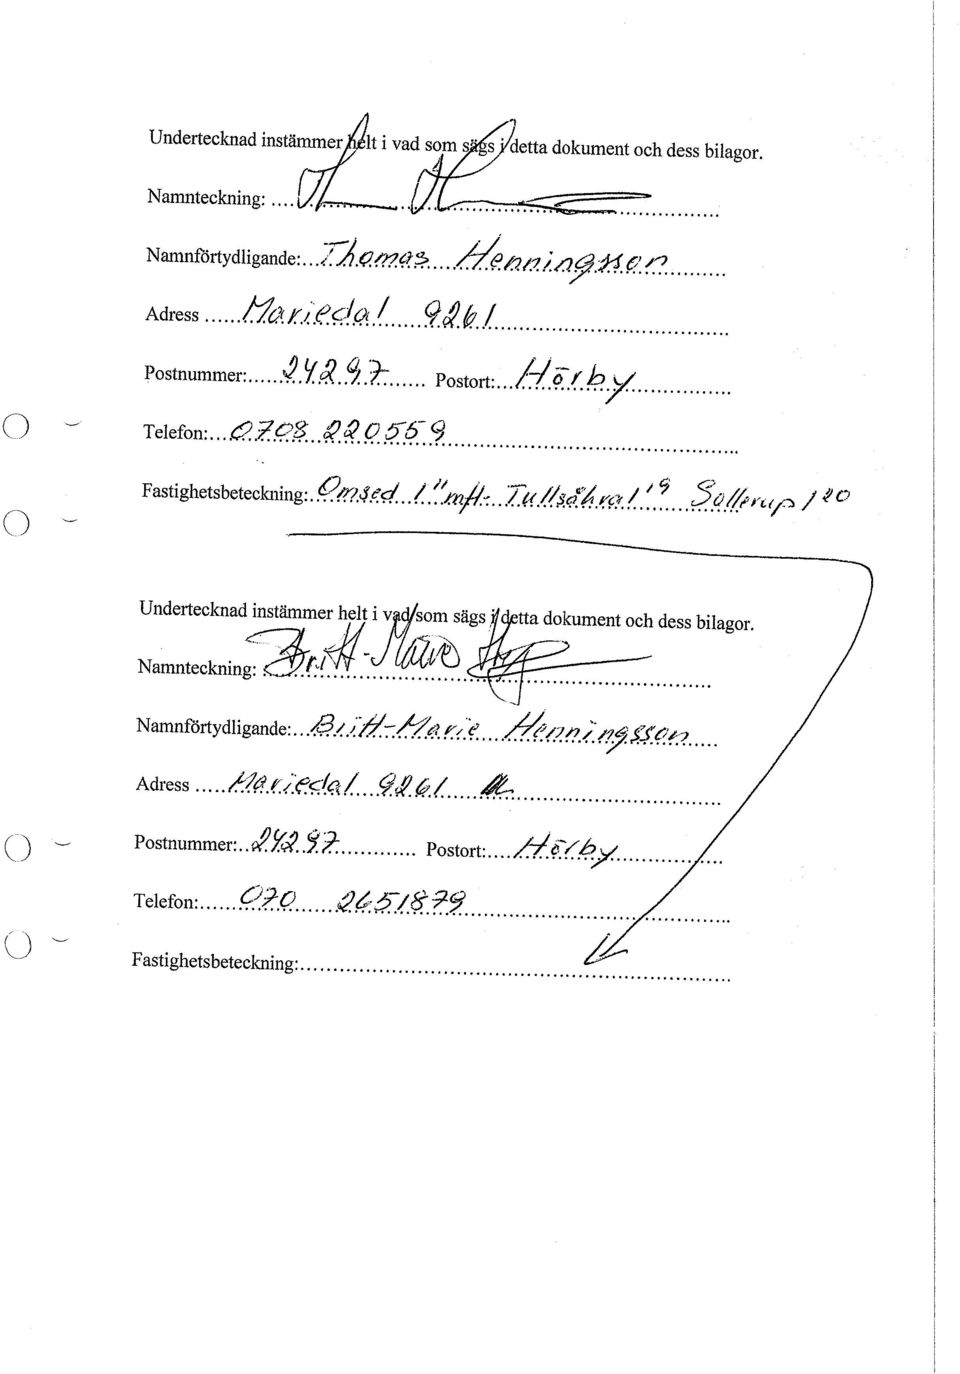 Undertecknad instämmer helt i vad som sägs i detta dokument och dess bilagor.
Namnteckning:
Namnförtydligande: Thomas Henningsson
Adress Mariedal 9261
Postnummer: 24297 Postort: Hörby
Telefon: 0708 220559
Fastighetsbeteckning: Omsed 1 Sollerup 1 20
Undertecknad instämmer helt i vad som sägs i detta dokument och dess bilagor.
Namnteckning: Britt-Marie
Namnförtydligande: Britt-Marie Henningsson
Adress Mariedal 9261
Postnummer: 24297 Postort: Hörby
Telefon: 070 2651879
Fastighetsbeteckning: